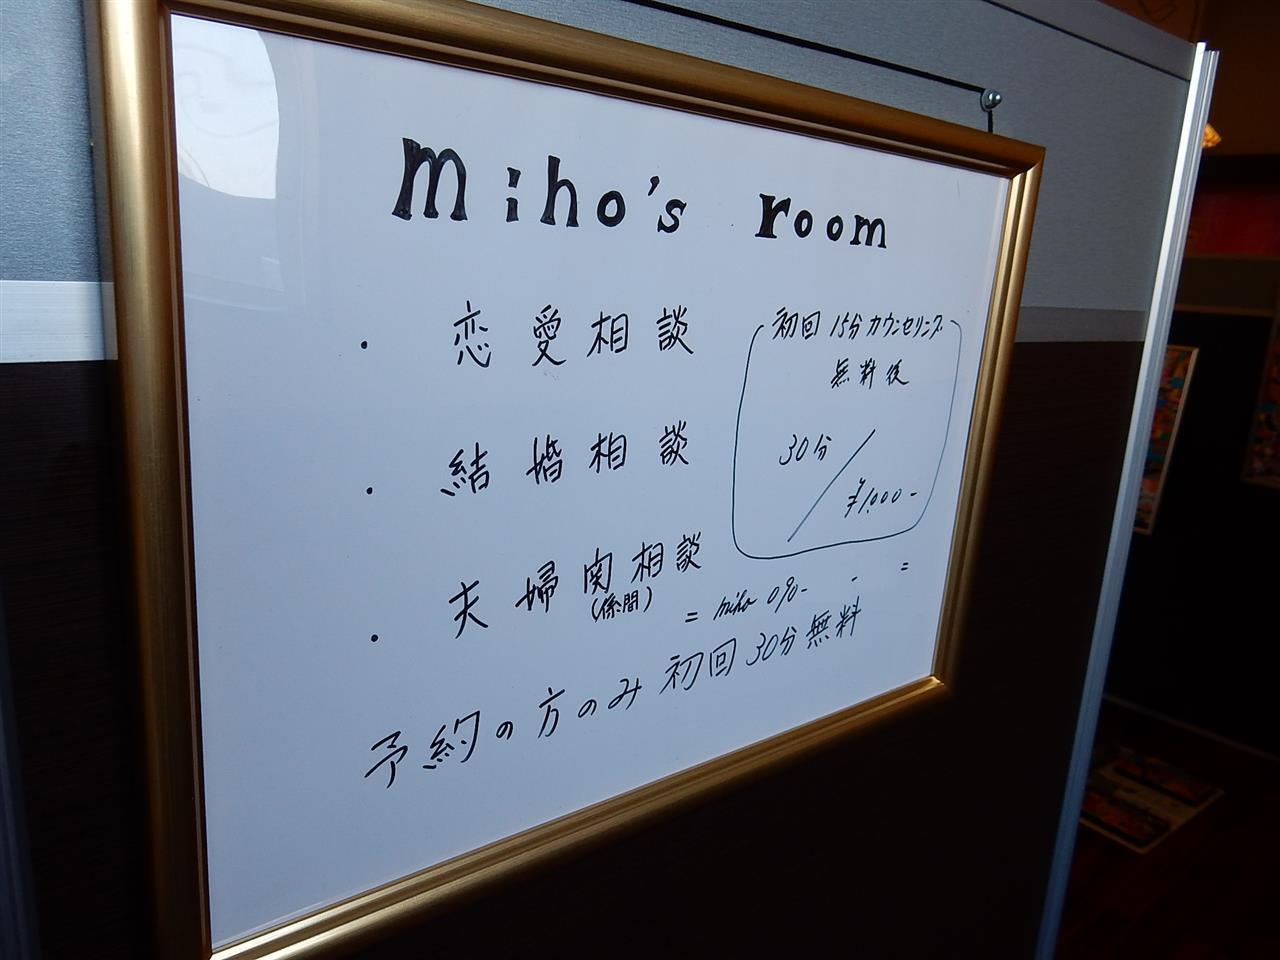 miho's room
・ 恋愛相談
・ 結婚相談
・ 夫婦関相談
(係間)
初回 15分カウンセリング
無料後
30分 / ¥1,000-
= miho 090- - =
予約の方のみ 初回 30分 無料